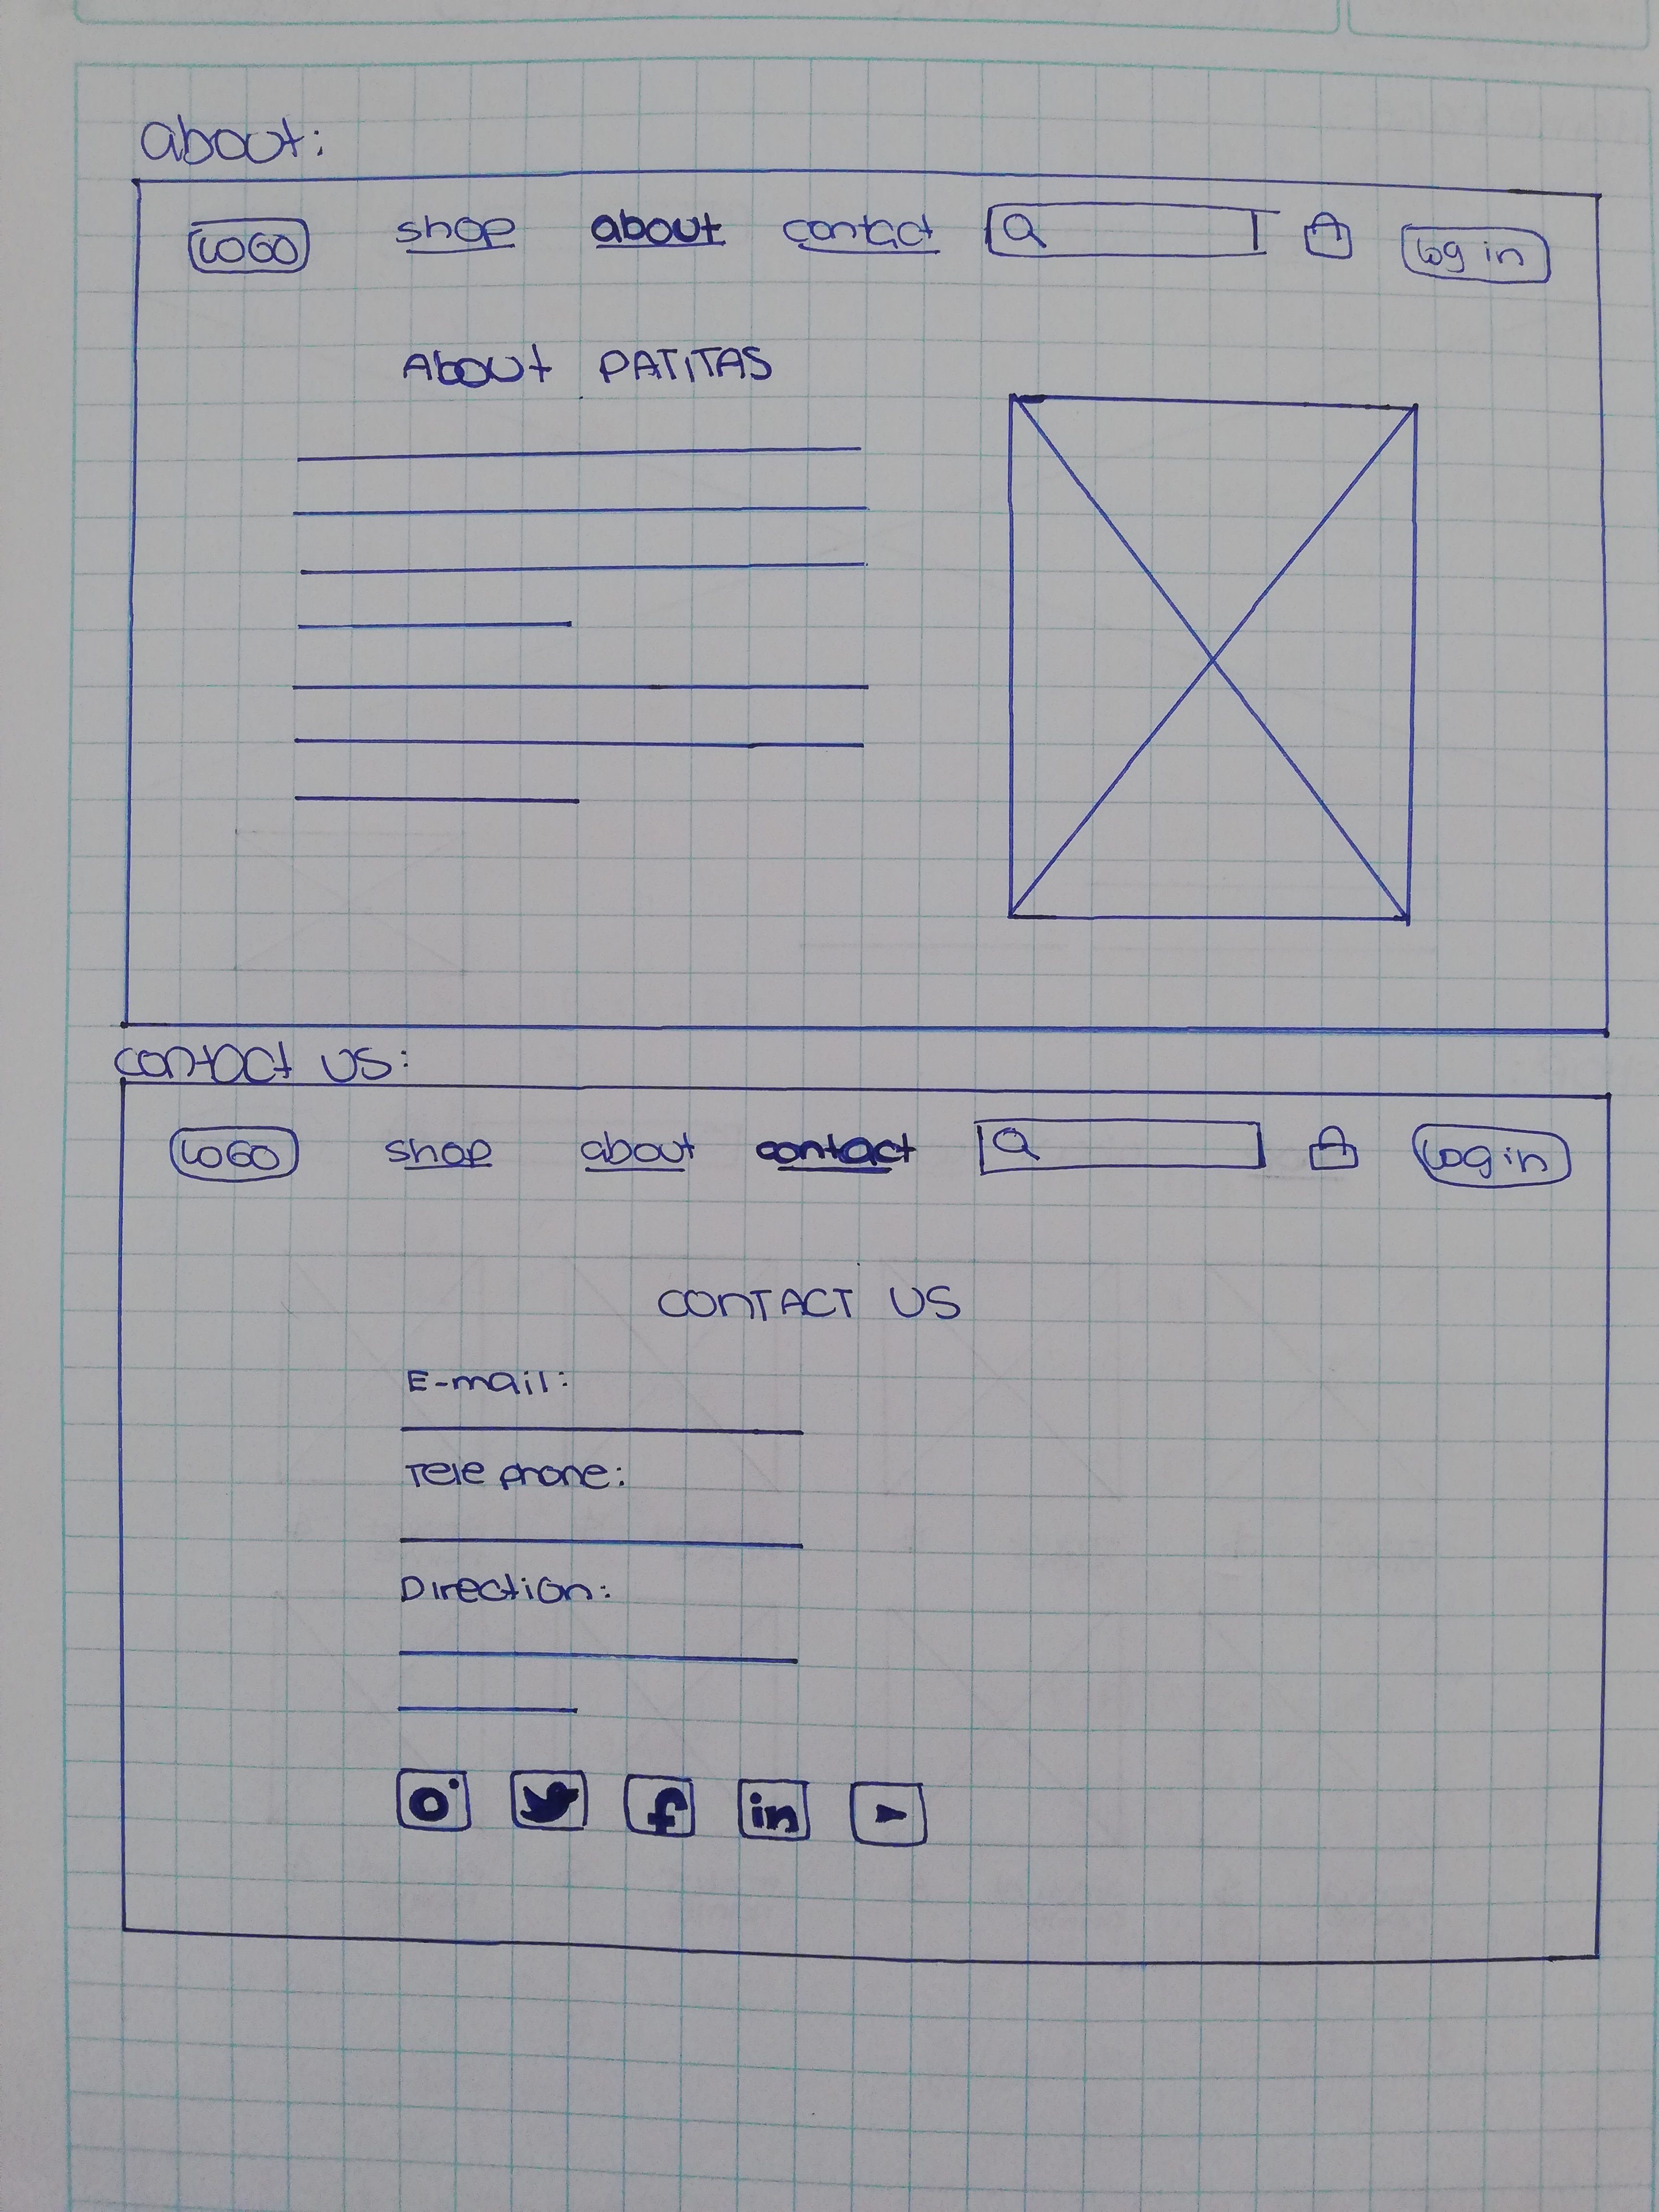 about:
LOGO shop about contact log in
About PATITAS
contact us:
LOGO shop about contact Log in
CONTACT US
E-mail:
Telephone:
Direction:
f in